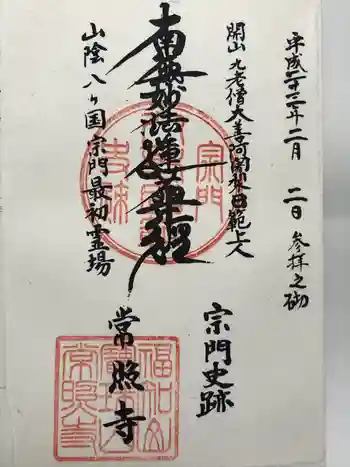 平成二十三年二月 二日 参拝之砌
開山 九老僧大善阿闍梨日範上人
南無妙法蓮華経
山陰八ヶ国宗門最初霊場
宗門史跡
常照寺
宗門史跡
福知山
常照寺